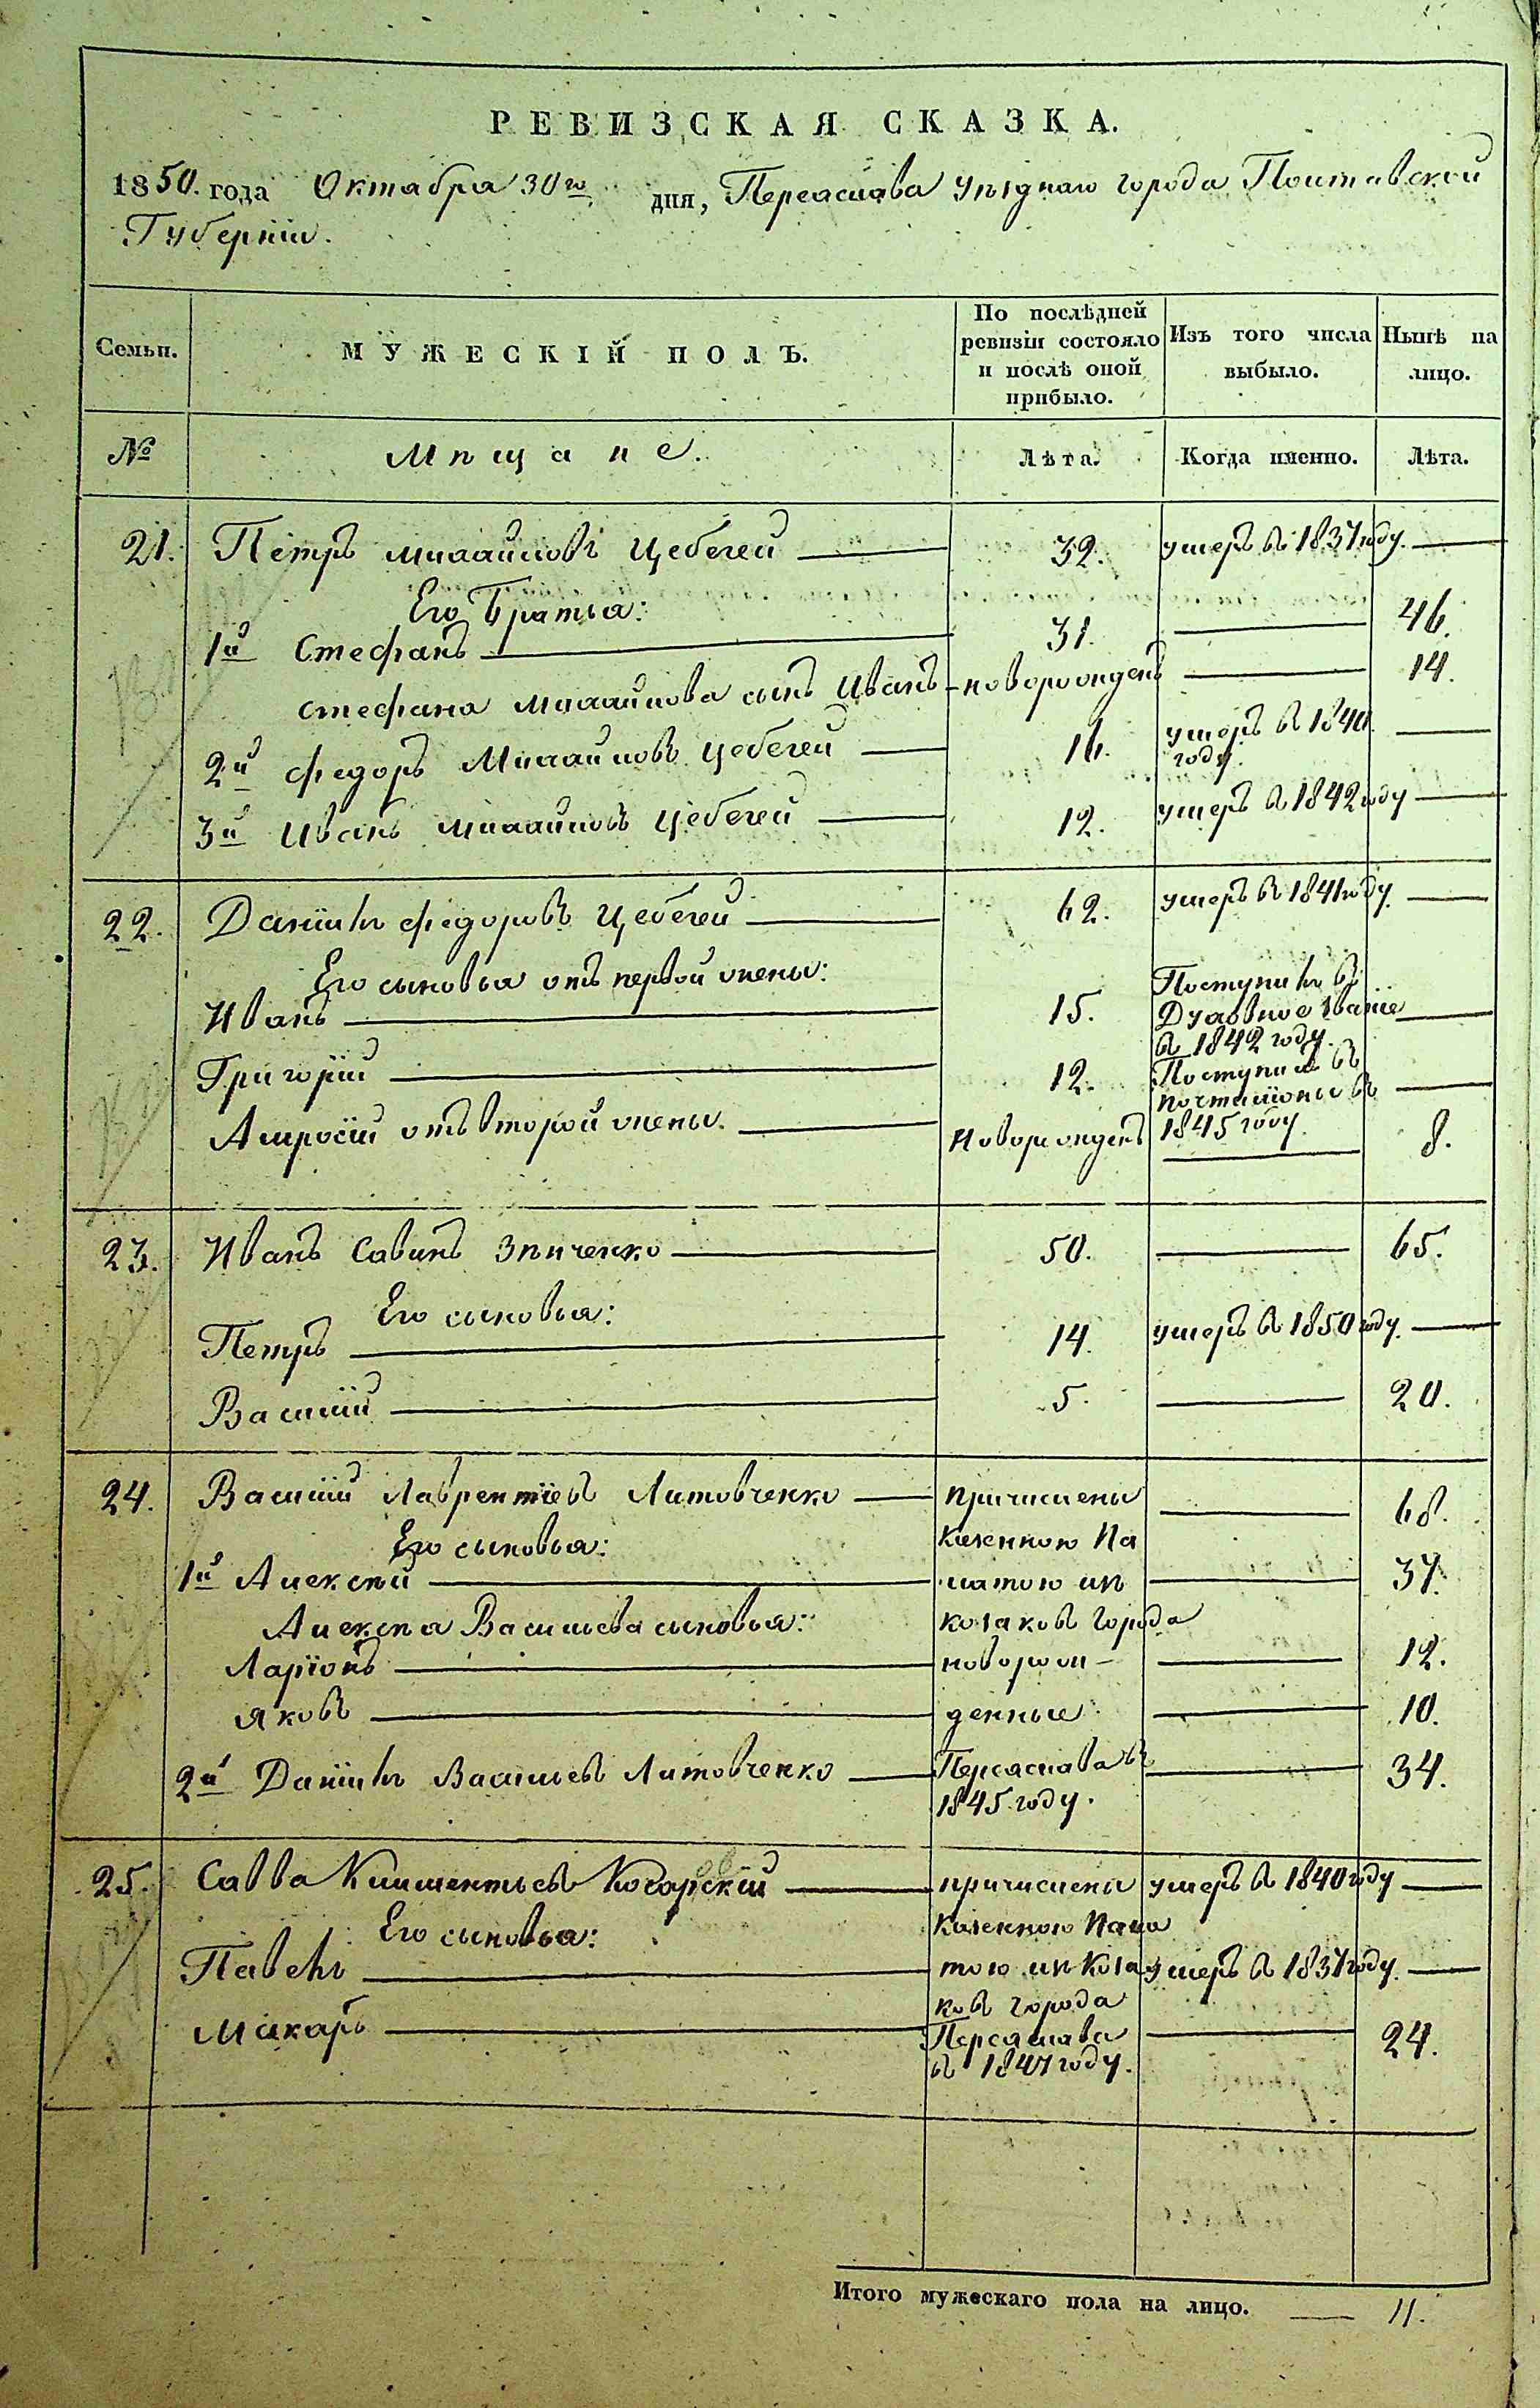 РЕВИЗСКАЯ СКАЗКА.
1850. года Октабра 30го дня, Переаслава уѣзднаго города Полтавской
Губерніи.
Семьи.
МУЖЕСКІЙ ПОЛЪ.
По послѣдней
ревизіи состояло
и послѣ оной
прибыло.
Изъ того числа
выбыло.
Нынѣ на
лицо.
№
Мѣщане.
Лѣта.
Когда именно.
Лѣта.
21. Петръ Михайловъ Цебегей 32. умеръ въ 1837 году.
Его Братьа:
1й Стефанъ 31. 46.
Стефана Михайлова сынъ Иванъ новорожденъ 14.
2й Федоръ Михайловъ Цебегей 16. умеръ в 1840
году.
3й Иванъ Михайловъ Цебегей 12. умеръ в 1842 году
22. Даніилъ Федоровъ Цебегей 62. умеръ в 1841 году.
Его сыновьа отъ первой жены:
Иванъ 15. Поступилъ в
Духовное званіе
в 1842 году.
Григорій 12. Поступилъ въ
почталіоны в
1845 году.
Амросій отъ второй жены. Новорожденъ 8.
23. Иванъ Савинъ Зѣнченко 50. 65.
Его сыновьа:
Петръ 14. умеръ в 1850 году.
Василій 5. 20.
24. Василій Лаврентіевъ Литовченко причислены 68.
Его сыновьа: Казенною Па
1й Алексѣй латою изъ 37.
Алексѣа Васильева сыновьа: козаковъ города
Ларіонъ новорож- 12.
Яковъ денные 10.
2й Даніилъ Васильевъ Литовченко Переаслава в 34.
1845 году.
25. Савва Климентьевъ Кочарскій причислены умеръ в 1840 году
Его сыновьа: Казенною Пала
Павелъ тою изъ Коза умеръ в 1837 году.
ковъ города
Макаръ Переаслава 24.
в 1847 году.
Итого мужескаго пола на лицо. 11.